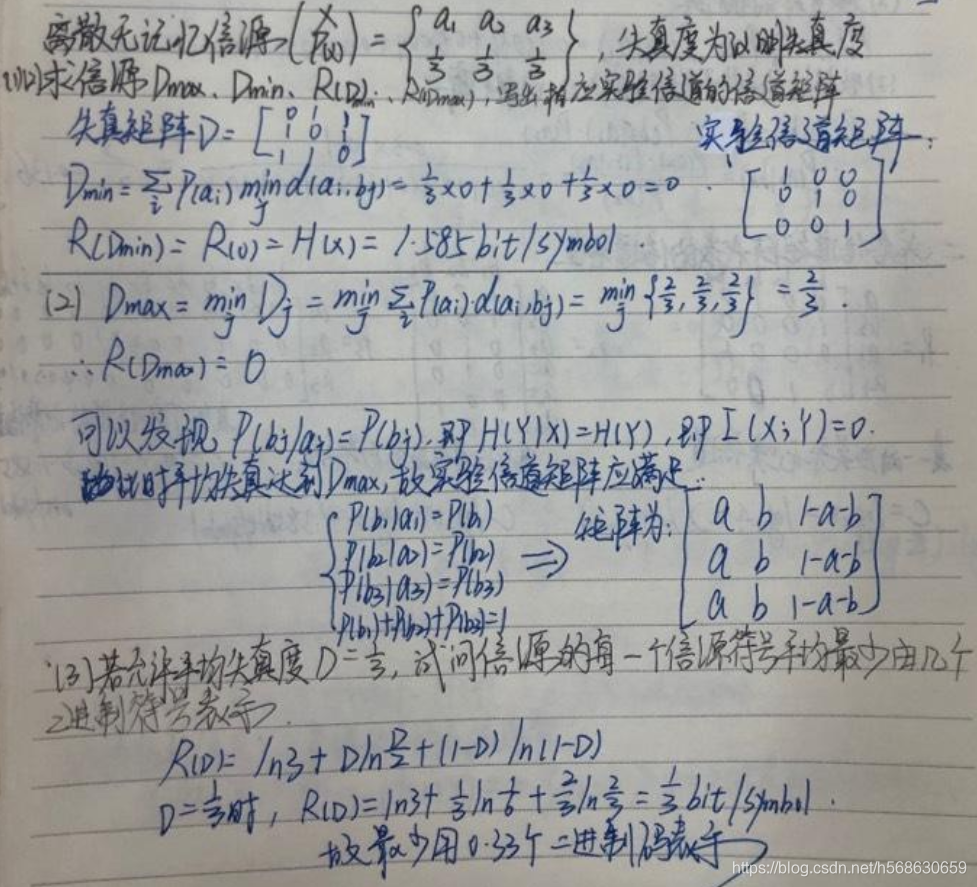 离散无记忆信源 (X P(x)) = { a₁ a₂ a₃ 1/3 1/3 1/3 }, 失真度为汉明失真度
(1)(2)求信源 Dmax、Dmin、R(Dmin)、R(Dmax), 写出相应实验信道的信道矩阵
失真矩阵D = [0 1 1 1 0 1 1 1 0]
实验信道矩阵:
[1 0 0 0 1 0 0 0 1]
Dmin = ∑i P(ai) minj d(ai,bj) = 1/3×0 + 1/3×0 + 1/3×0 = 0.
R(Dmin) = R(0) = H(X) = 1.585 bit/symbol.
(2) Dmax = minj Dj = minj ∑i P(ai)·d(ai,bj) = minj {2/3, 2/3, 2/3} = 2/3.
∴ R(Dmax) = 0
可以发现 P(bj/aj) = P(bj), 即 H(Y|X) = H(Y), 即 I(X;Y) = 0.
此时平均失真达到Dmax, 故实验信道矩阵应满足:
{ P(b₁|a₁) = P(b₁)
P(b₂|a₂) = P(b₂)
P(b₃|a₃) = P(b₃)
P(b₁)+P(b₂)+P(b₃)=1
⇒ 矩阵为: [a b 1-a-b a b 1-a-b a b 1-a-b]
(3)若允许平均失真度 D = 1/3, 试问信源的每一个信源符号平均最少由几个
2进制符号表示.
R(D) = ln3 + D ln D/2 + (1-D) ln(1-D)
D = 1/3时, R(D) = ln3 + 1/3 ln 1/6 + 2/3 ln 2/3 = 1/3 bit/symbol.
故最少用0.33个二进制码表示
https://blog.csdn.net/h568630659